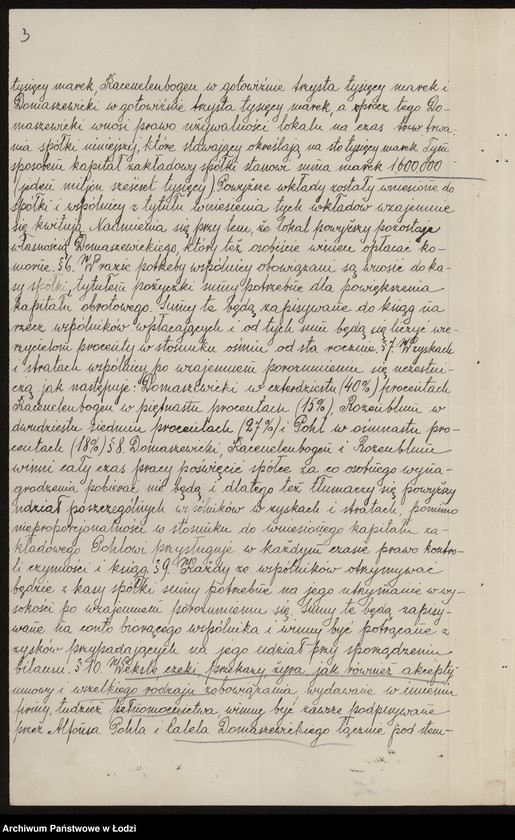 3
tysięcy marek, Kacenelenbogen w gotowiźnie trzysta tysięcy marek i
Domaszewicki w gotowiźnie trzysta tysięcy marek, a oprócz tego Do-
maszewicki wnosi prawo używalności lokalu na czas trwa-
nia spółki niniejszej, które stawający określają na sto tysięcy marek. Tym
sposobem kapitał zakładowy spółki stanowi suma marek 1600,000
(jeden miljon sześćset tysięcy) Powyższe wkłady zostały wniesione do
spółki i wspólnicy z tytułu wniesienia tych wkładów wzajemnie
się kwitują. Nadmienia się przy tem, że lokal powyższy pozostaje
własnością Domaszewickiego, który też osobiście winien opłacać ko-
morne. §6. W razie potrzeby wspólnicy obowiązani są wnosić do ka-
sy spółki, tytułem pożyczki sumy potrzebne dla powiększenia
kapitału obrotowego. Sumy te będą zapisywane do ksiąg na
rzecz wspólników wpłacających i od tych sum będą się liczyć wie-
rzycielom procenty w stosunku osiem od sta rocznie. §7. W zyskach
i stratach wspólnicy po wzajemnem porozumieniu się uczestni-
czą jak następuje: Domaszewicki w czterdziestu (40%) procentach
Kacenelenbogen w piętnastu procentach (15%), Rozenblum w
dwudziestu siedmiu procentach (27%) i Pohl w osimnastu pro-
centach (18%) §8. Domaszewicki, Kacenelenbogen i Rozenblum
winni cały czas pracy poświęcić spółce za co osobnego wyna-
grodzenia pobierać nie będą i dlatego też tłumaczy się powyższy
udział poszczególnych wspólników w zyskach i stratach, pomimo
nieproporcjonalności w stosunku do wniesionego kapitału za-
kładowego Pohlowi przysługuje w każdym czasie prawo kontro-
li czynności i ksiąg. §9. Każdy ze wspólników otrzymywać
będzie z kasy spółki sumy potrzebne na jego utrzymanie w wy-
sokości po wzajemnem porozumieniu się. Sumy te będą zapisy-
wane na conto biorącego wspólnika i winny być potrącane z
zysków przypadających na jego udział przy sporządzeniu
bilansu. §10. Weksle, czeki, przekazy, żyra, jak również akcepty
umowy i wszelkiego rodzaju zobowiązania wydawane w imieniu
firmy, tudzież pełnomocnictwa winny być zawsze podpisywane
przez Alfonsa Pohla i Calela Domaszewickiego łącznie pod stem-
Archiwum Państwowe w Łodzi